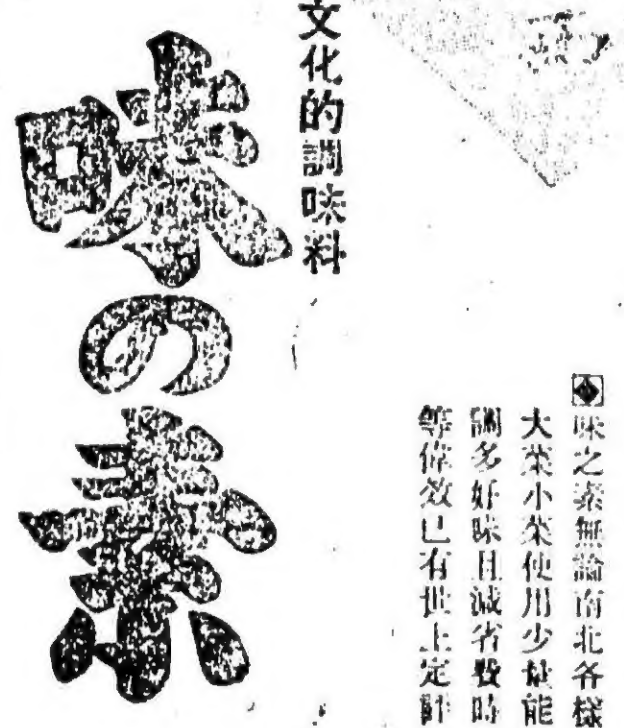 文化的調味料
味の素
味之素無論南北各樣
大菜小菜使用少量能
調多好味且減省費時
等偉效已有世上定評